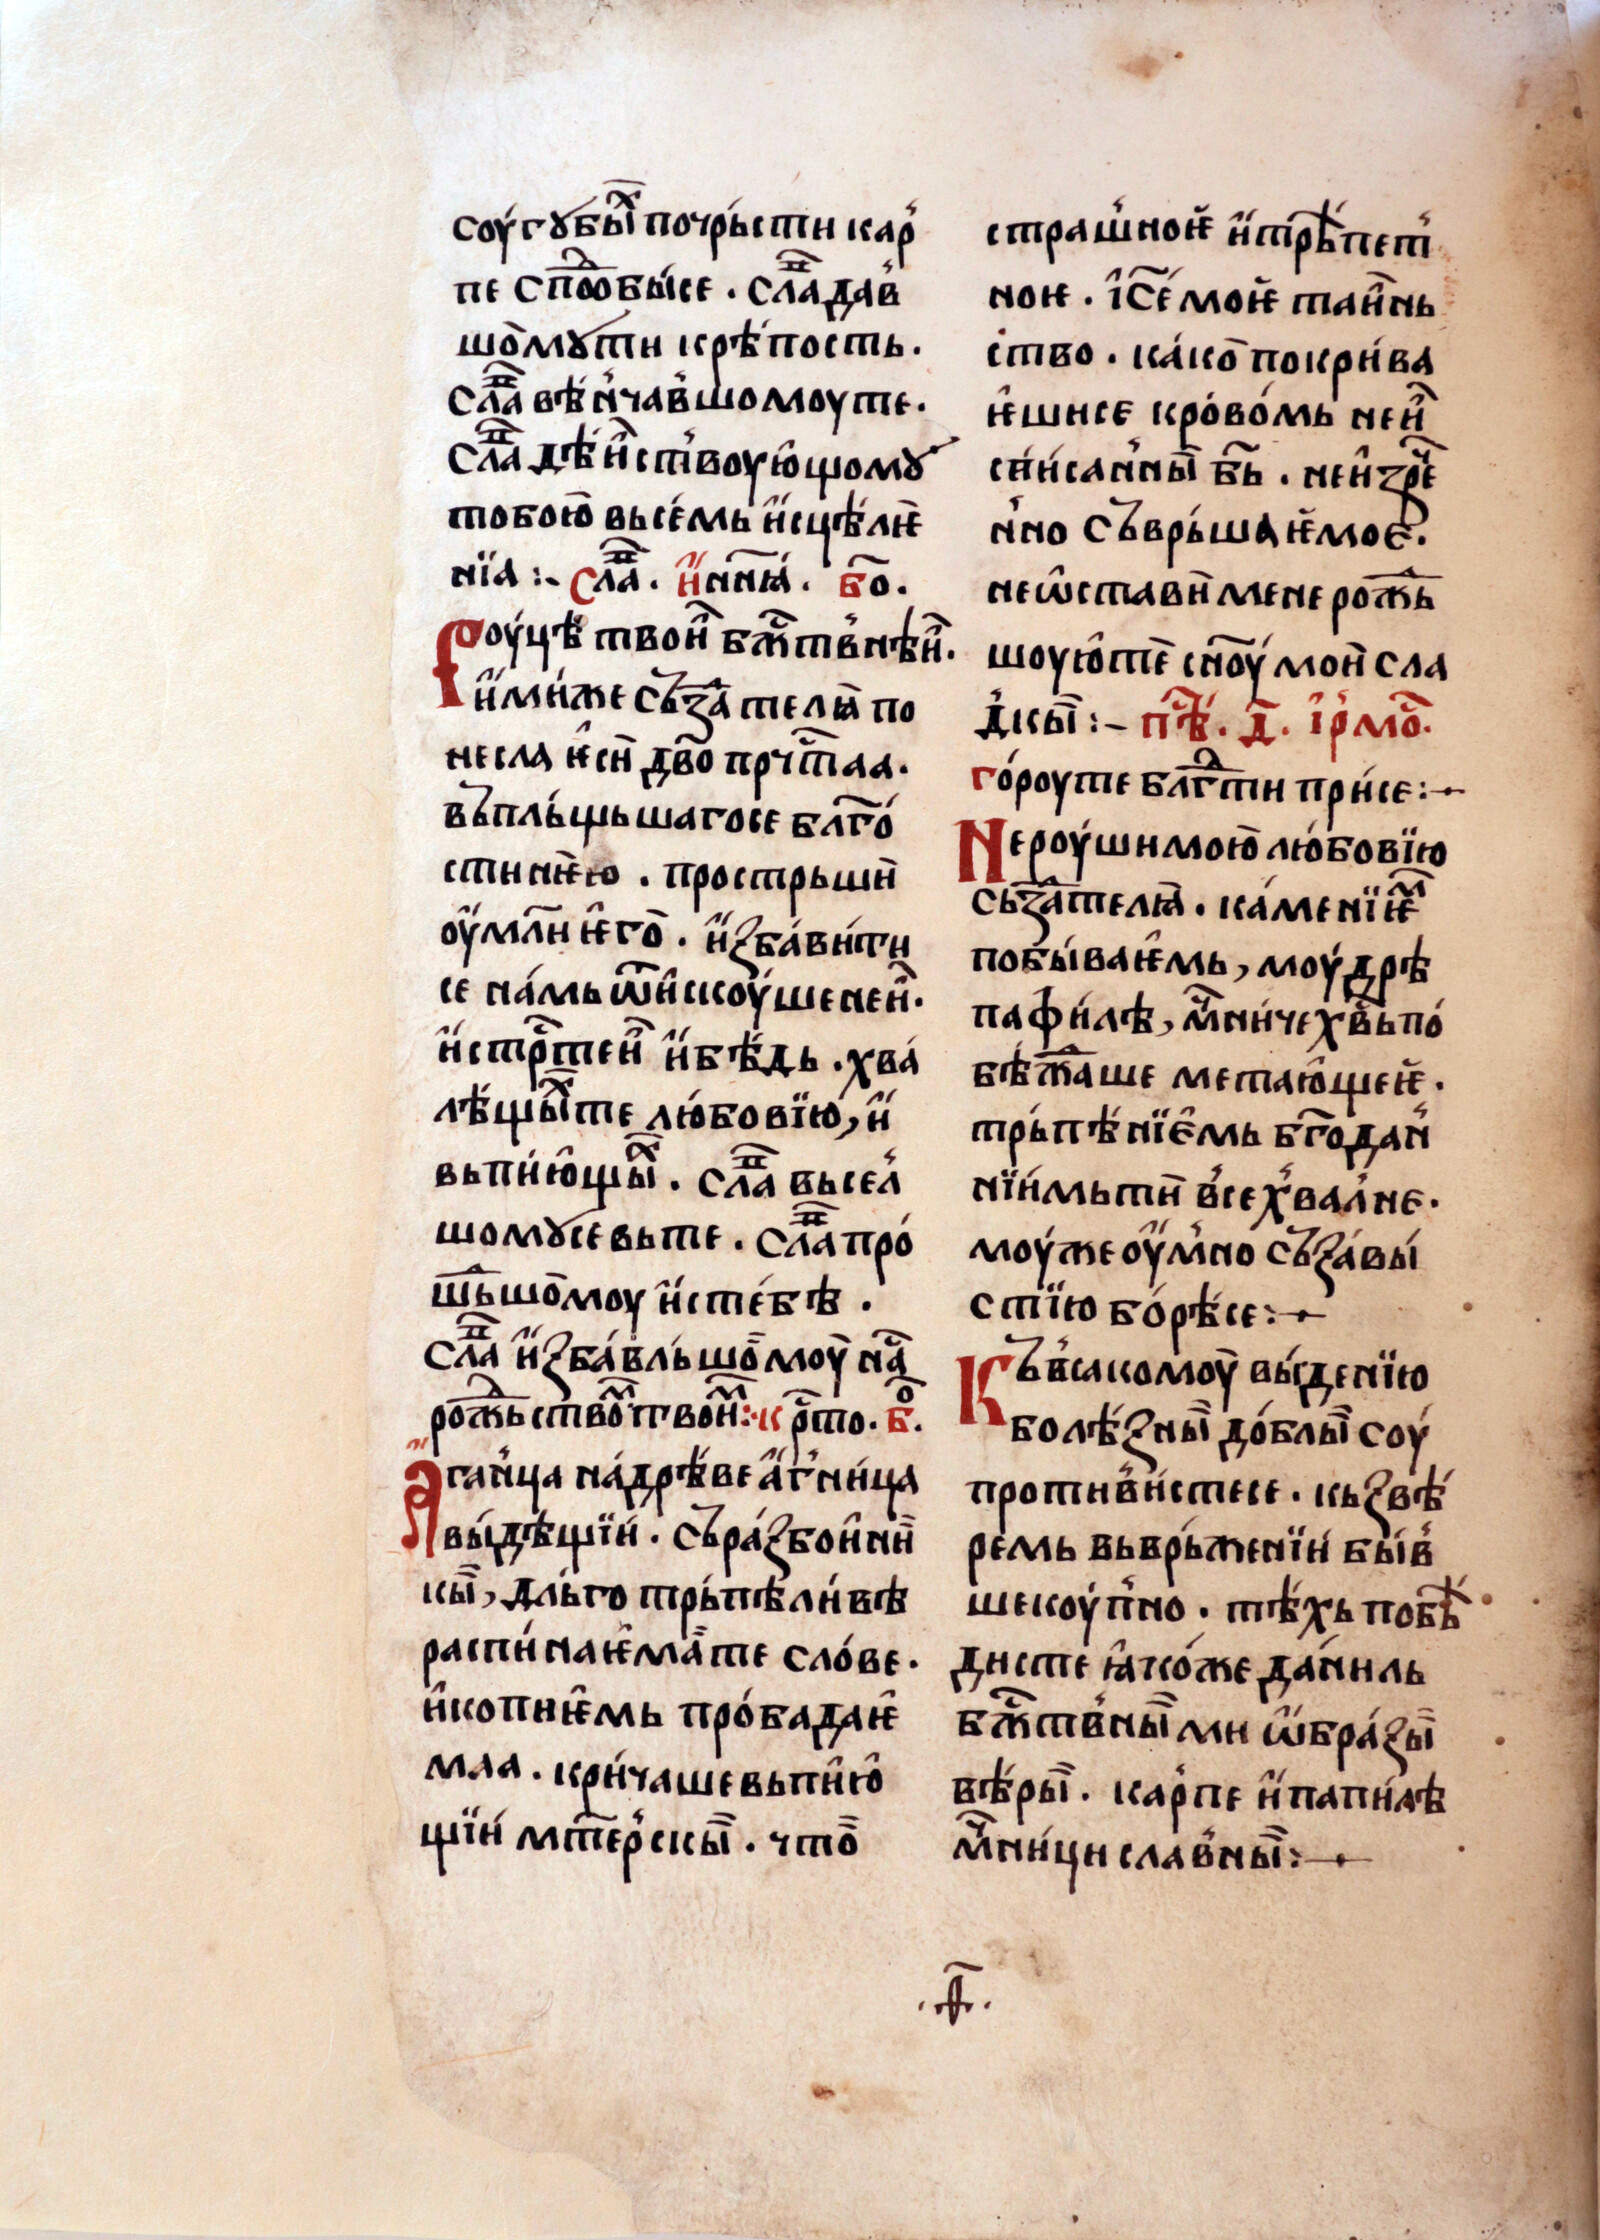 соу́гꙋбы́и҇х почрь́сти кар̾
пе сп҇добы́се . сла҇дав̾
шо҇мꙋти крѣ́пость .
сла҇ вѣ́нчав̾шомоуте .
сла҇ дѣ́ист̾воую̑щомꙋ
тобою҇ вьсе́мь и҆сцѣ́лѥ
нїа :~ Сла҇ . и҆ нн҃ꙗ . бо҃ .
Роу́цѣ твои҇ бж҇тв̾нѣи҇ .
и҆ми́же създа҇телꙗ по
несла ѥ҆си дв҃о прчⷭ҇таа .
въпль́щьшагосе бл҃го́
стиѥ҆ю . прострьши
оу҆мл҃и ѥ҆го҇ . и҆ꙁба́вити
се на́мь ѿи҆скоу́шенеи҇ .
и҆стрⷭ҇теи҇ и҆бѣ́дь . хва́
лѣ́щыи҇хте лю́бовїю , и҆
вьпию́щы҇х . сла҇ вьсел̾
шомꙋсе вьте . сла҇ про́
шь҇дшо҇моу и҆сте́бѣ .
сла҇ и҆ꙁба́вль́шо҇моу на҇с
рож҇ьство҇м твои҇м :· крⷭ҇то . бо҃ .
Аганца на́дрѣве а҆г̾ни́ца
вы́дѣщїи́ . съра́ꙁбои̑ни҇
кы҇ , дль́го трь́пѣли́вѣ
распи́наѥ̑ма҇ те сло́ве .
и҆копиѥ̑мь про́бадаѥ̑
маа . кри́чаше вьпи̑ю̑
щїи́ мт҃ер̾скы҇ . что҇
страш̾ноѥ и҆трѣ́пет̾
ноѥ . і҆с҃е́ мо́ѥ таи̑нь
ство . ка́ко҇ покри́ва
ѥ҆шисе кро́во́мь неи҇
си́исан̾ны҇ бь҃ . неи̑ꙁре҇
н̾но съврь́шаꙗ ѥ҆мое .
неѡ҆стави҇ мене рож҇ь
шоую̑те҇ сн҃оу́ мои҇ сла
д̾кы҇ :~ пѣⷭ҇ . д҃ . і҆рмо҇ .
го́роуте блг҇дти при́се :~
Нероу́шимою҇ лю́бовїю
създа҇телꙗ . ка́менїѥ҇м
побы́ваѥ̑мь , моу́дрѣ
пафи́лѣ , мч҃ниче хв҃ь по
бѣж҇даше метаю̑щеѥ .
трь́пѣ́нїе̑мь бг҃одан̾
нїи́мьти҇ в̾сех̾вал̾не .
моу́жеоу҆м̾но съꙁа́вы́
стїю бо́рѣ́се :~
Къв̾сакомоу҇ вы́дденїю
болѣ́ꙁны҇ до́блы҇ соу́
противи́стесе . кьꙁвѣ́
ремь вьврь́женїи́ быв̾
шекоу́п̾но . тѣ́хь побѣ́
дисте ꙗ҆ко́же да́ниль
бж҇тв̾ны҇ми ѡ҆бра́ꙁы҇
вѣ́ры҇ . кар̾пе и҆папи́лѣ
мч҃ни́ци слав̾ны҇ :~